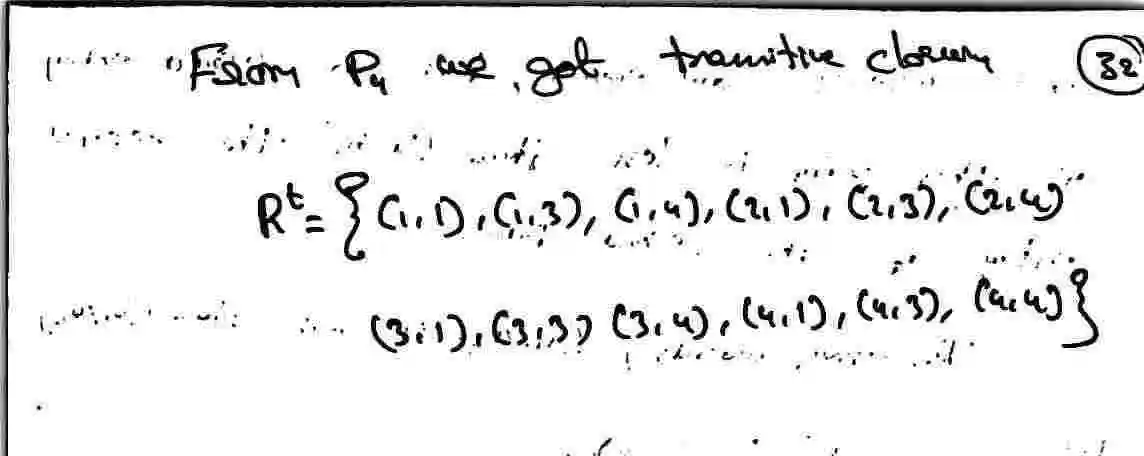 From P₄ we get transitive closure
32
Rᵗ = { (1,1), (1,3), (1,4), (2,1), (2,3), (2,4)
(3,1), (3,3) (3,4), (4,1), (4,3), (4,4) }